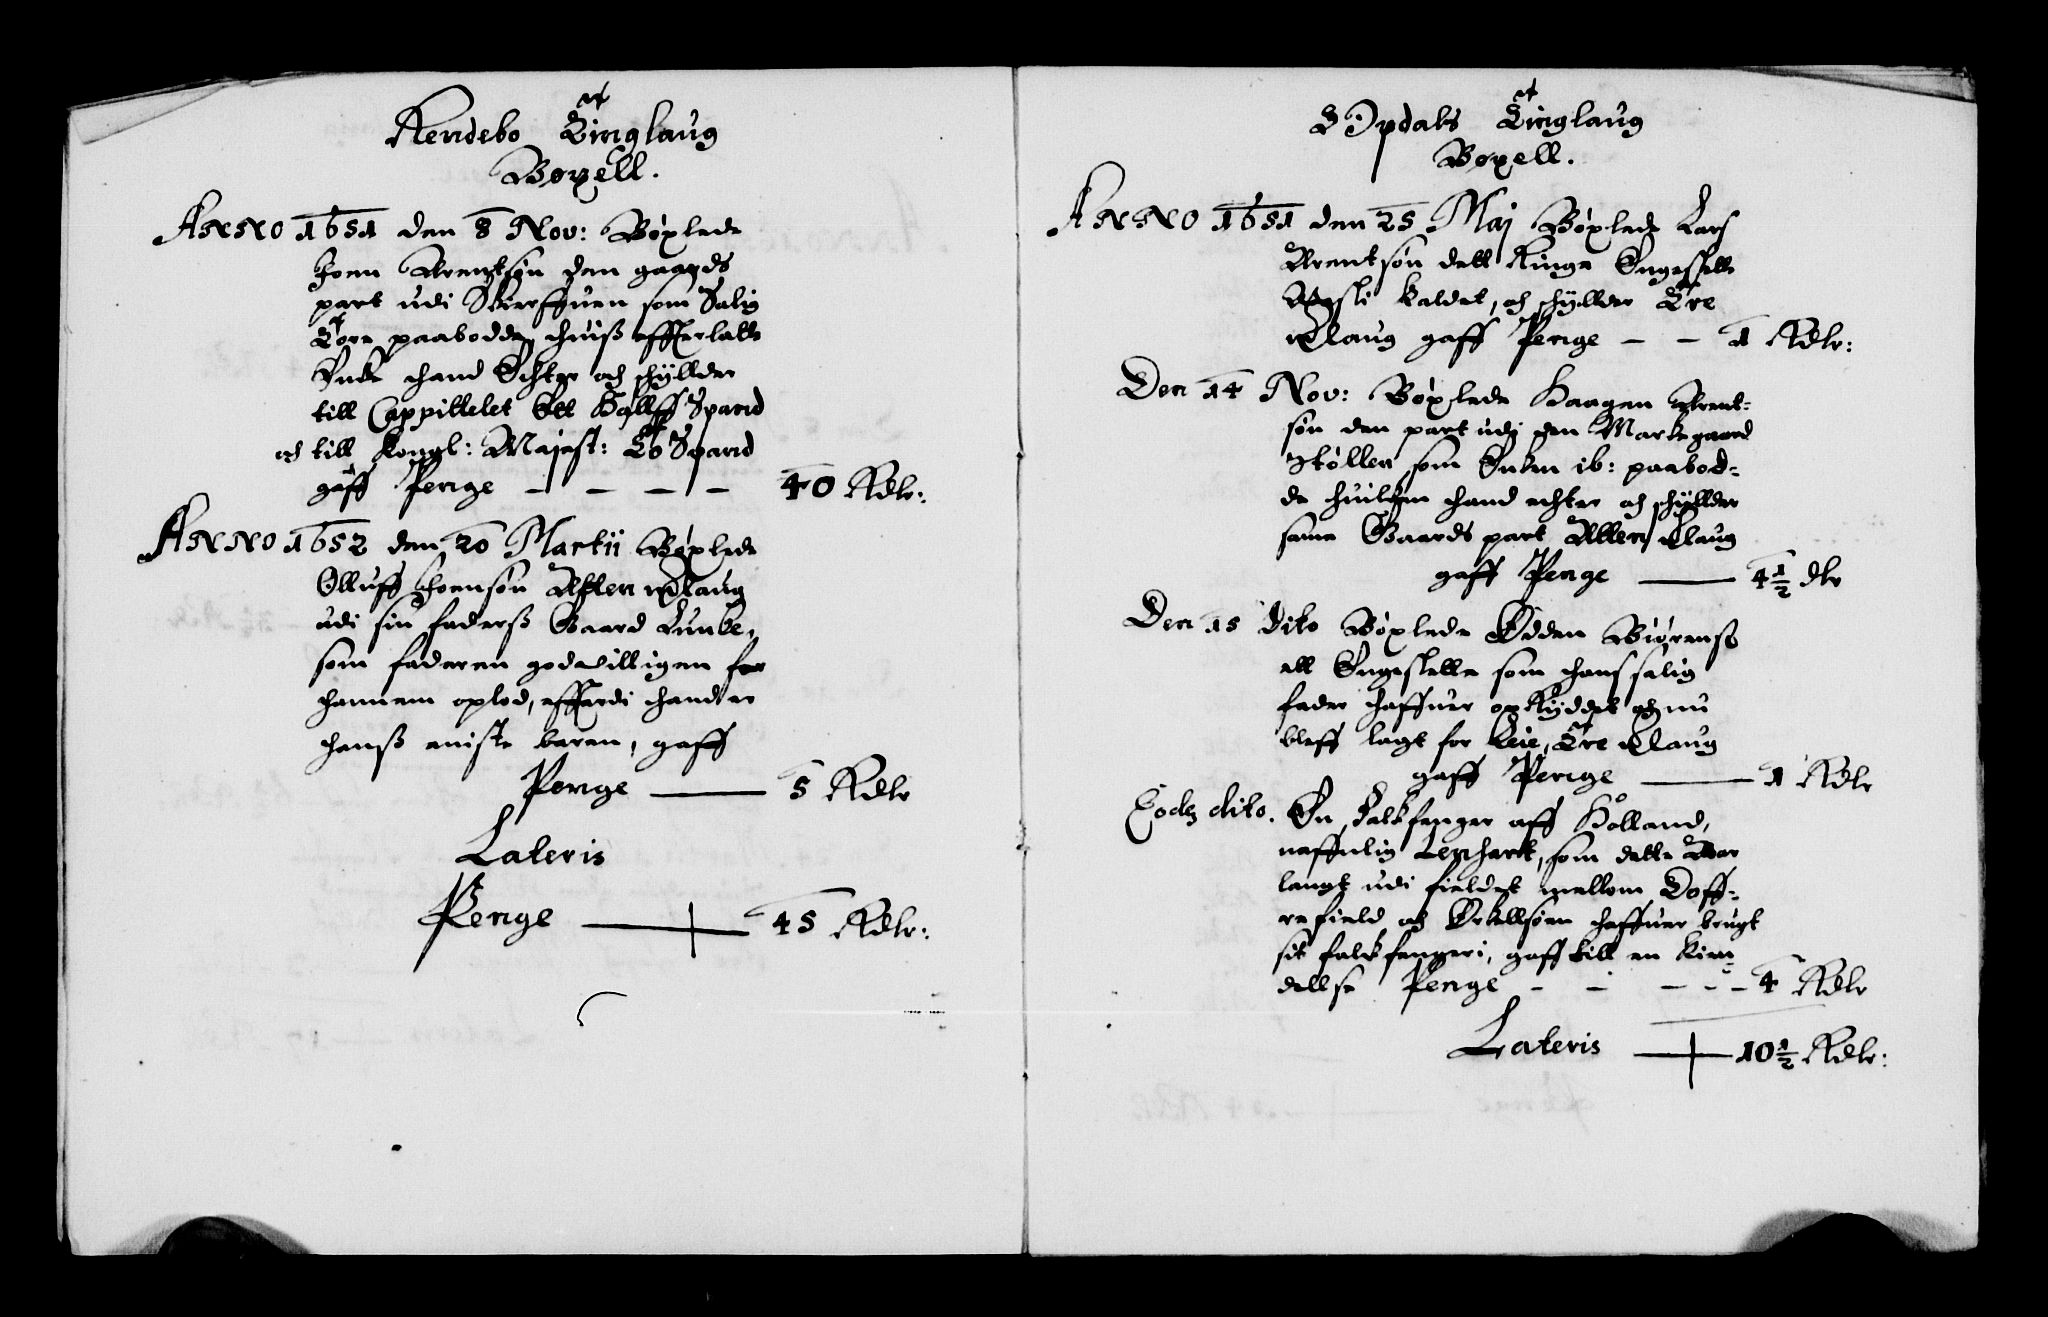 Rendebo Tinglaug
Bøxell.
Anno 1651 den 8 Nov: Bøxlede
Joen Arentsøn den gaards
part udi Skierffuen som Salig
Tore paabodde, huis effterlatte
Encke hand Echter och schyllder
till Cappittelet Ett Halff Spand
och till Kongl: Majest: To Spand
gaff Penge — — — — 40 Rdlr:
Anno 1652 den 20 Martii Bøxlede
Olluff Joensøn Atten Mrklaug
udi sin faderß Gaard Lunke,
som faderen godwilligen for
hannem oplod, efferdi hand er
hanß eniste baren, gaff
Penge — 5 Rdlr
Lateris
Penge — 45 Rdlr:
Opdals Tinglaug
Bøxell.
Anno 1651 den 25 Maj Bøxlede Lars
Arentsøn dett Ringe Engeslette
kaldet, och schyllder Tre
Mrklaug gaff Penge — — 1 Rdlr:
Den 14 Nov: Bøxlede Haagen Arent-
søn den part udj den Markegaard
Støllen som Encken ib: paabod-
de huilken hand echter och schyllder
same Gaards part Atten Mrklaug
gaff Penge — 4½ dlr
Den 15 dito Bøxlede Odden Biørenß
ett Engeslette som hans salig
fader haffuer opRyddet och nu
bleff lagt for Leie, Tre Mrklaug
gaff Penge — 1 Rdlr
Eodem dito. En Falckfenger aff Holland,
naffnlig Lenhart, som dette Aar
langt udi fieldet mellom Doff-
refield och Ørkellsøen haffuer brugt
sit falckfengeri, gaff till en Kien-
dellse Penge — — — — 4 Rdlr
Lateris — 10½ Rdlr: